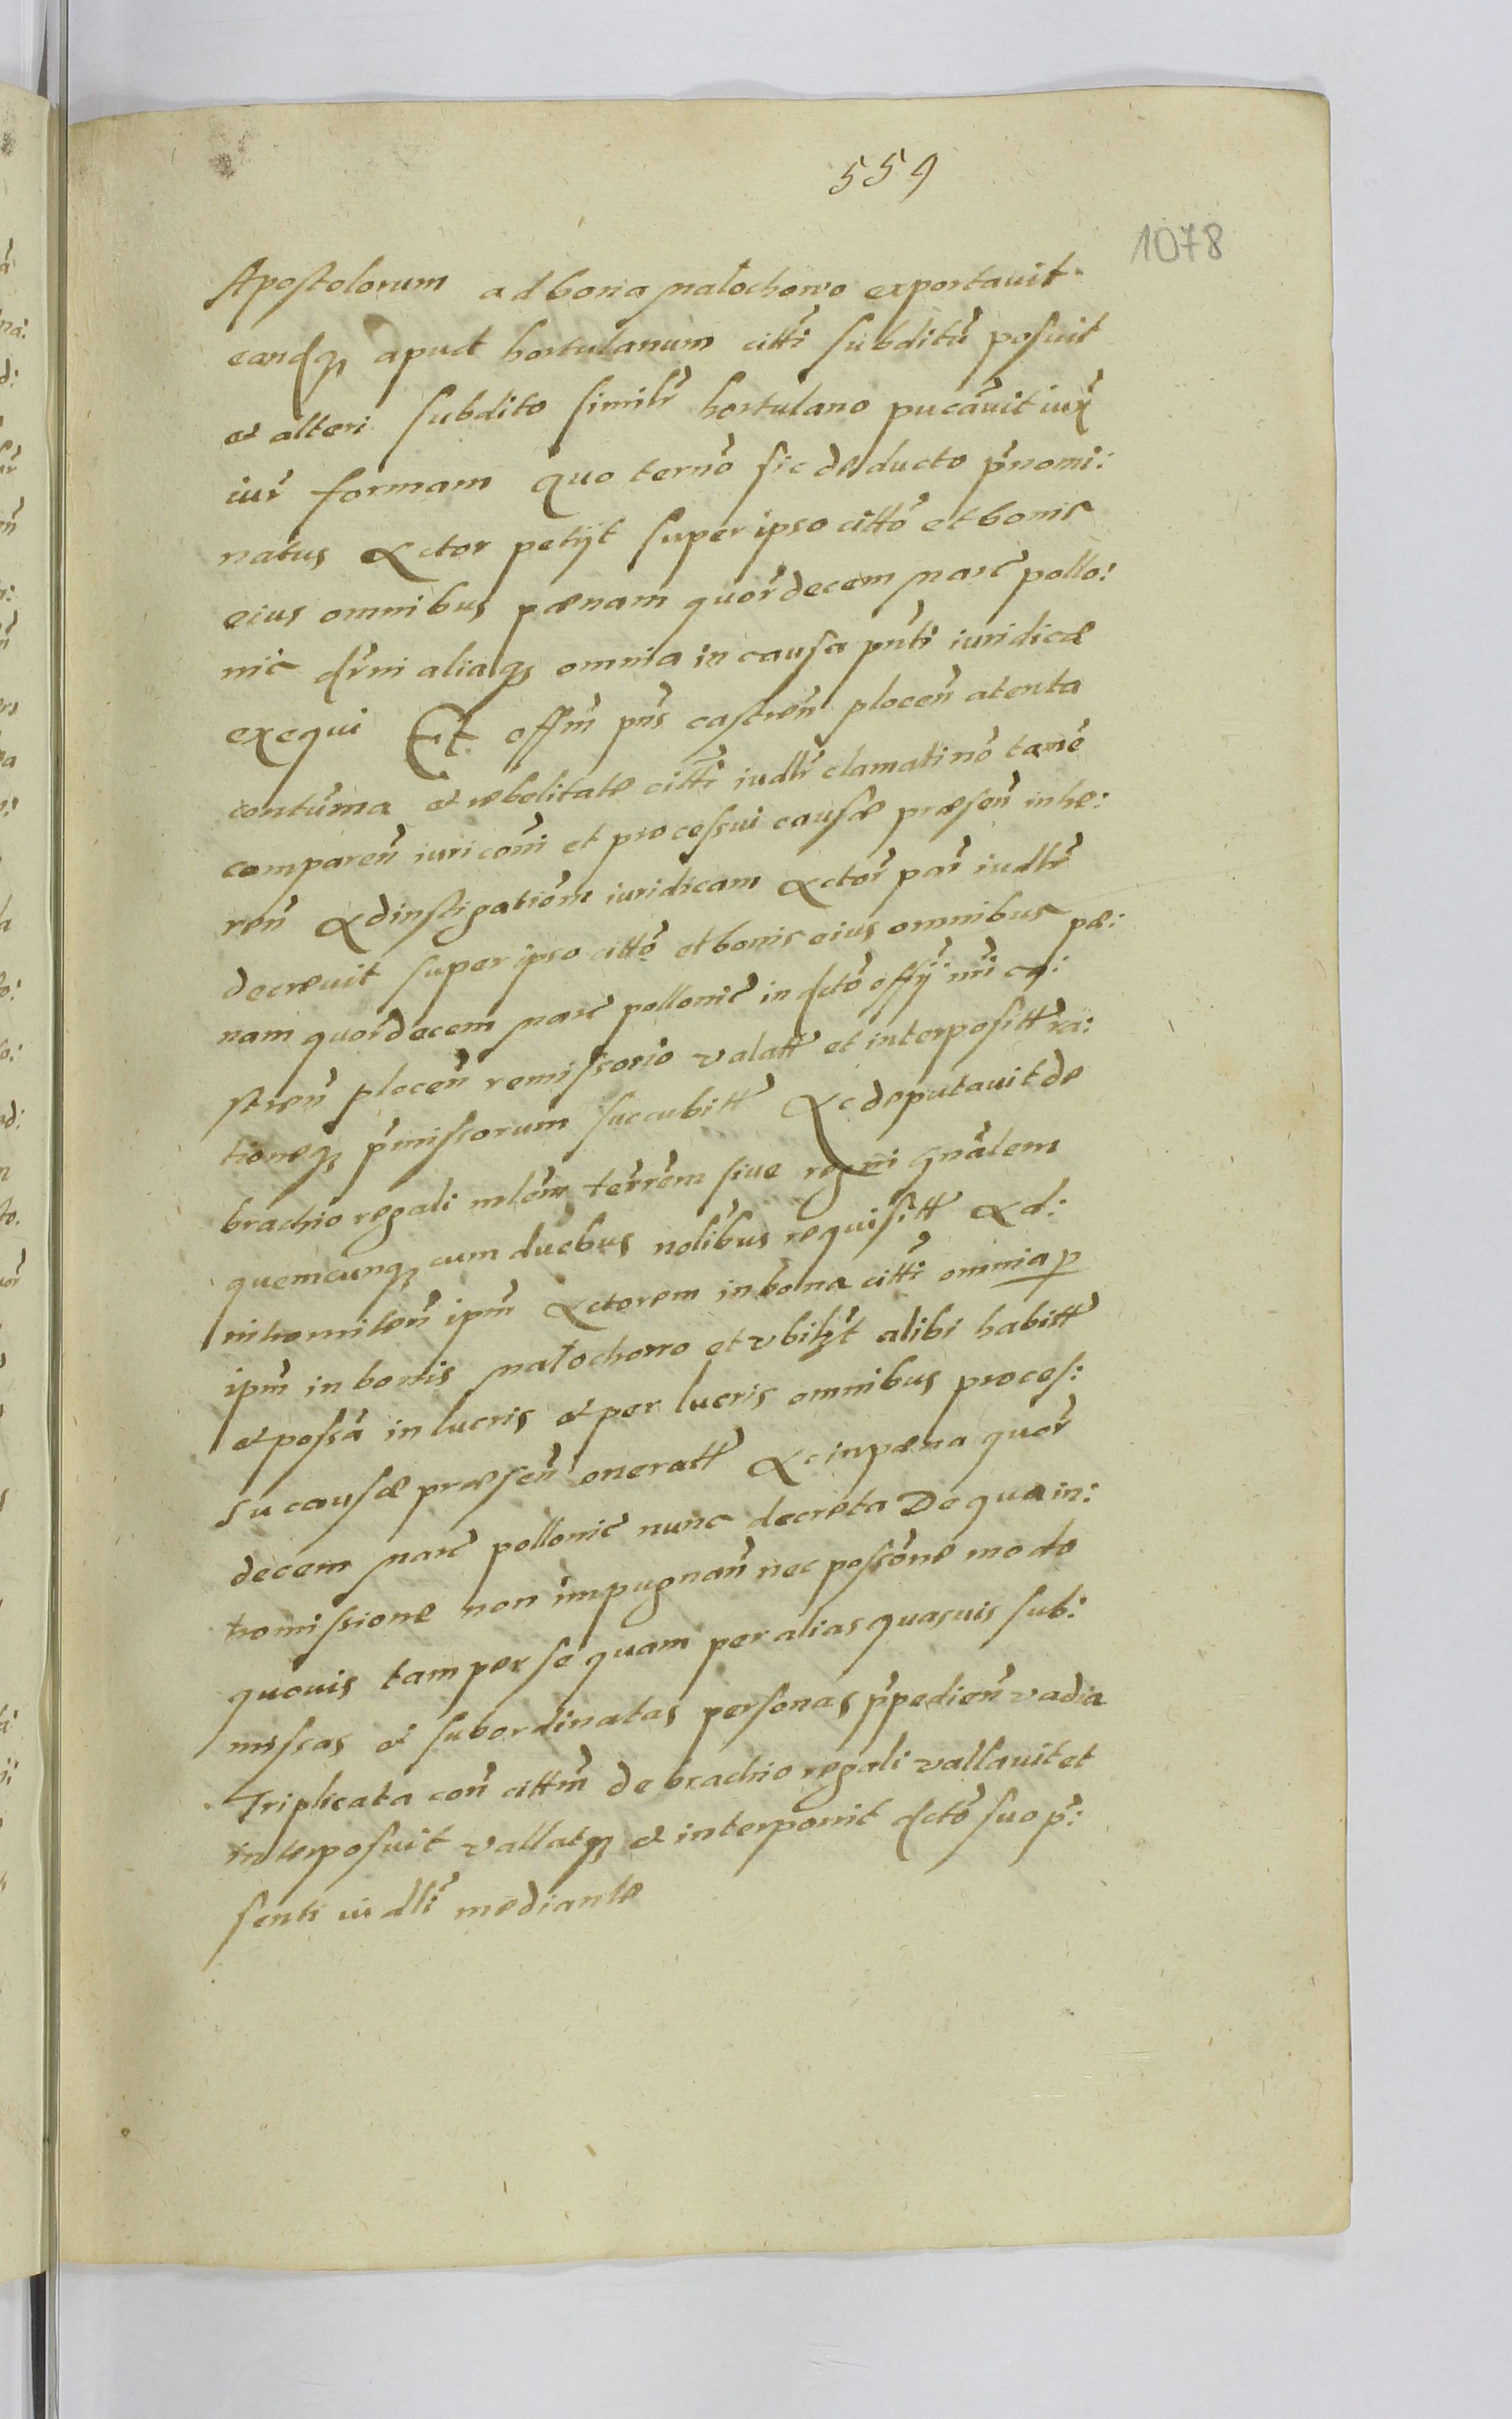 559
1078
Apostolorum ad bona Małochowo exportavit
eandq₃ apud hortulanum citti subditu posuit
et alteri subdito similr hortulano pucavit iux
iur formam quo terno sic deducto pnomi:
natus Actor petijt super ipso citto et bonis
eius omnibus pœnam quordecem marc pollo:
nic drni aliaq₃ omnia in causa pnti iuridicæ
exequi Et offm pns castren plocen atenta
contuma et rebelitate citti iudlr clamati no tame
comparen iuri coni et processui causæ præsen inhe:
ren Ad instigatiom iuridicam Actor par iudlr
decrevit super ipso citto et bonis eius omnibus pæ:
nam quordecem marc pollonic in dcto offy nri ca:
stren plocen remissorio valatt et interposittra:
tioneq₃ pmissorum succubitt Ac deputavit de
brachio regali mlem terrem sive regni gnalem
quemcunq₃ cum duobus nolibus requisitt Ad:
intromitten ipm Actorem in bona citti omnia p
ipm in bonis Małochowo et ubilzt alibi habitt
et possa in lucris et per lucris omnibus proces:
su causæ præsen oneratt Ac in pæna quor
decem marc pollonic nunc decreta De qua in:
tromissione non impugnan nec possone modo
quovis tam per se quam per alias quasvis sub:
missas et subordinatas personas ppedien vadia
Triplicata con cittm de brachio regali vallavit et
interposuit vallatq₃ et interponit dcto suo p:
senti iudlr mediante